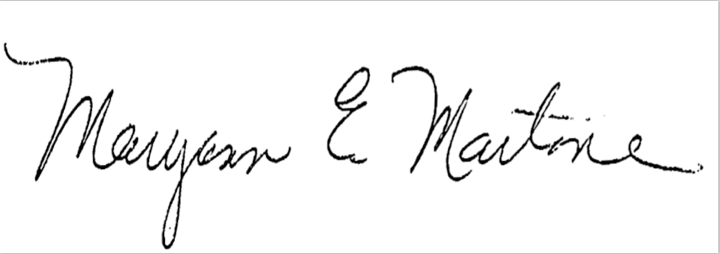 Maryann E Martone